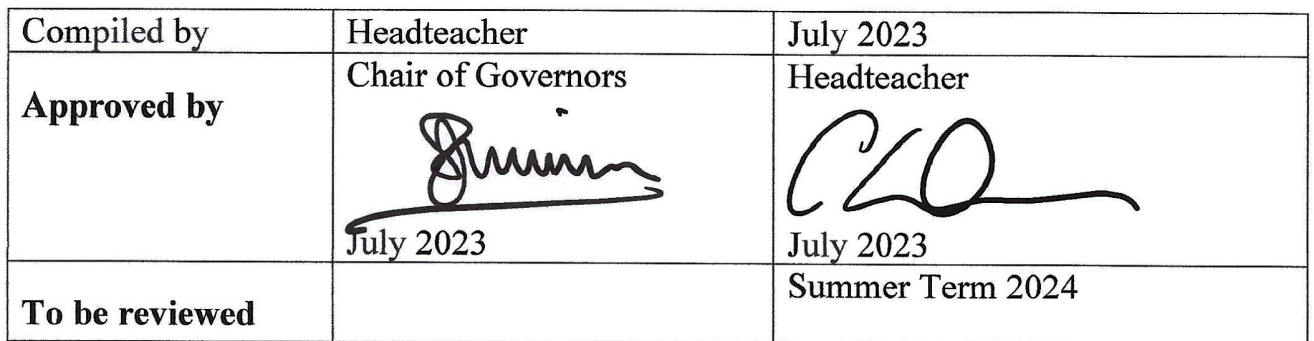 Compiled by Headteacher July 2023
Approved by
Chair of Governors
July 2023
Headteacher
July 2023
To be reviewed
Summer Term 2024